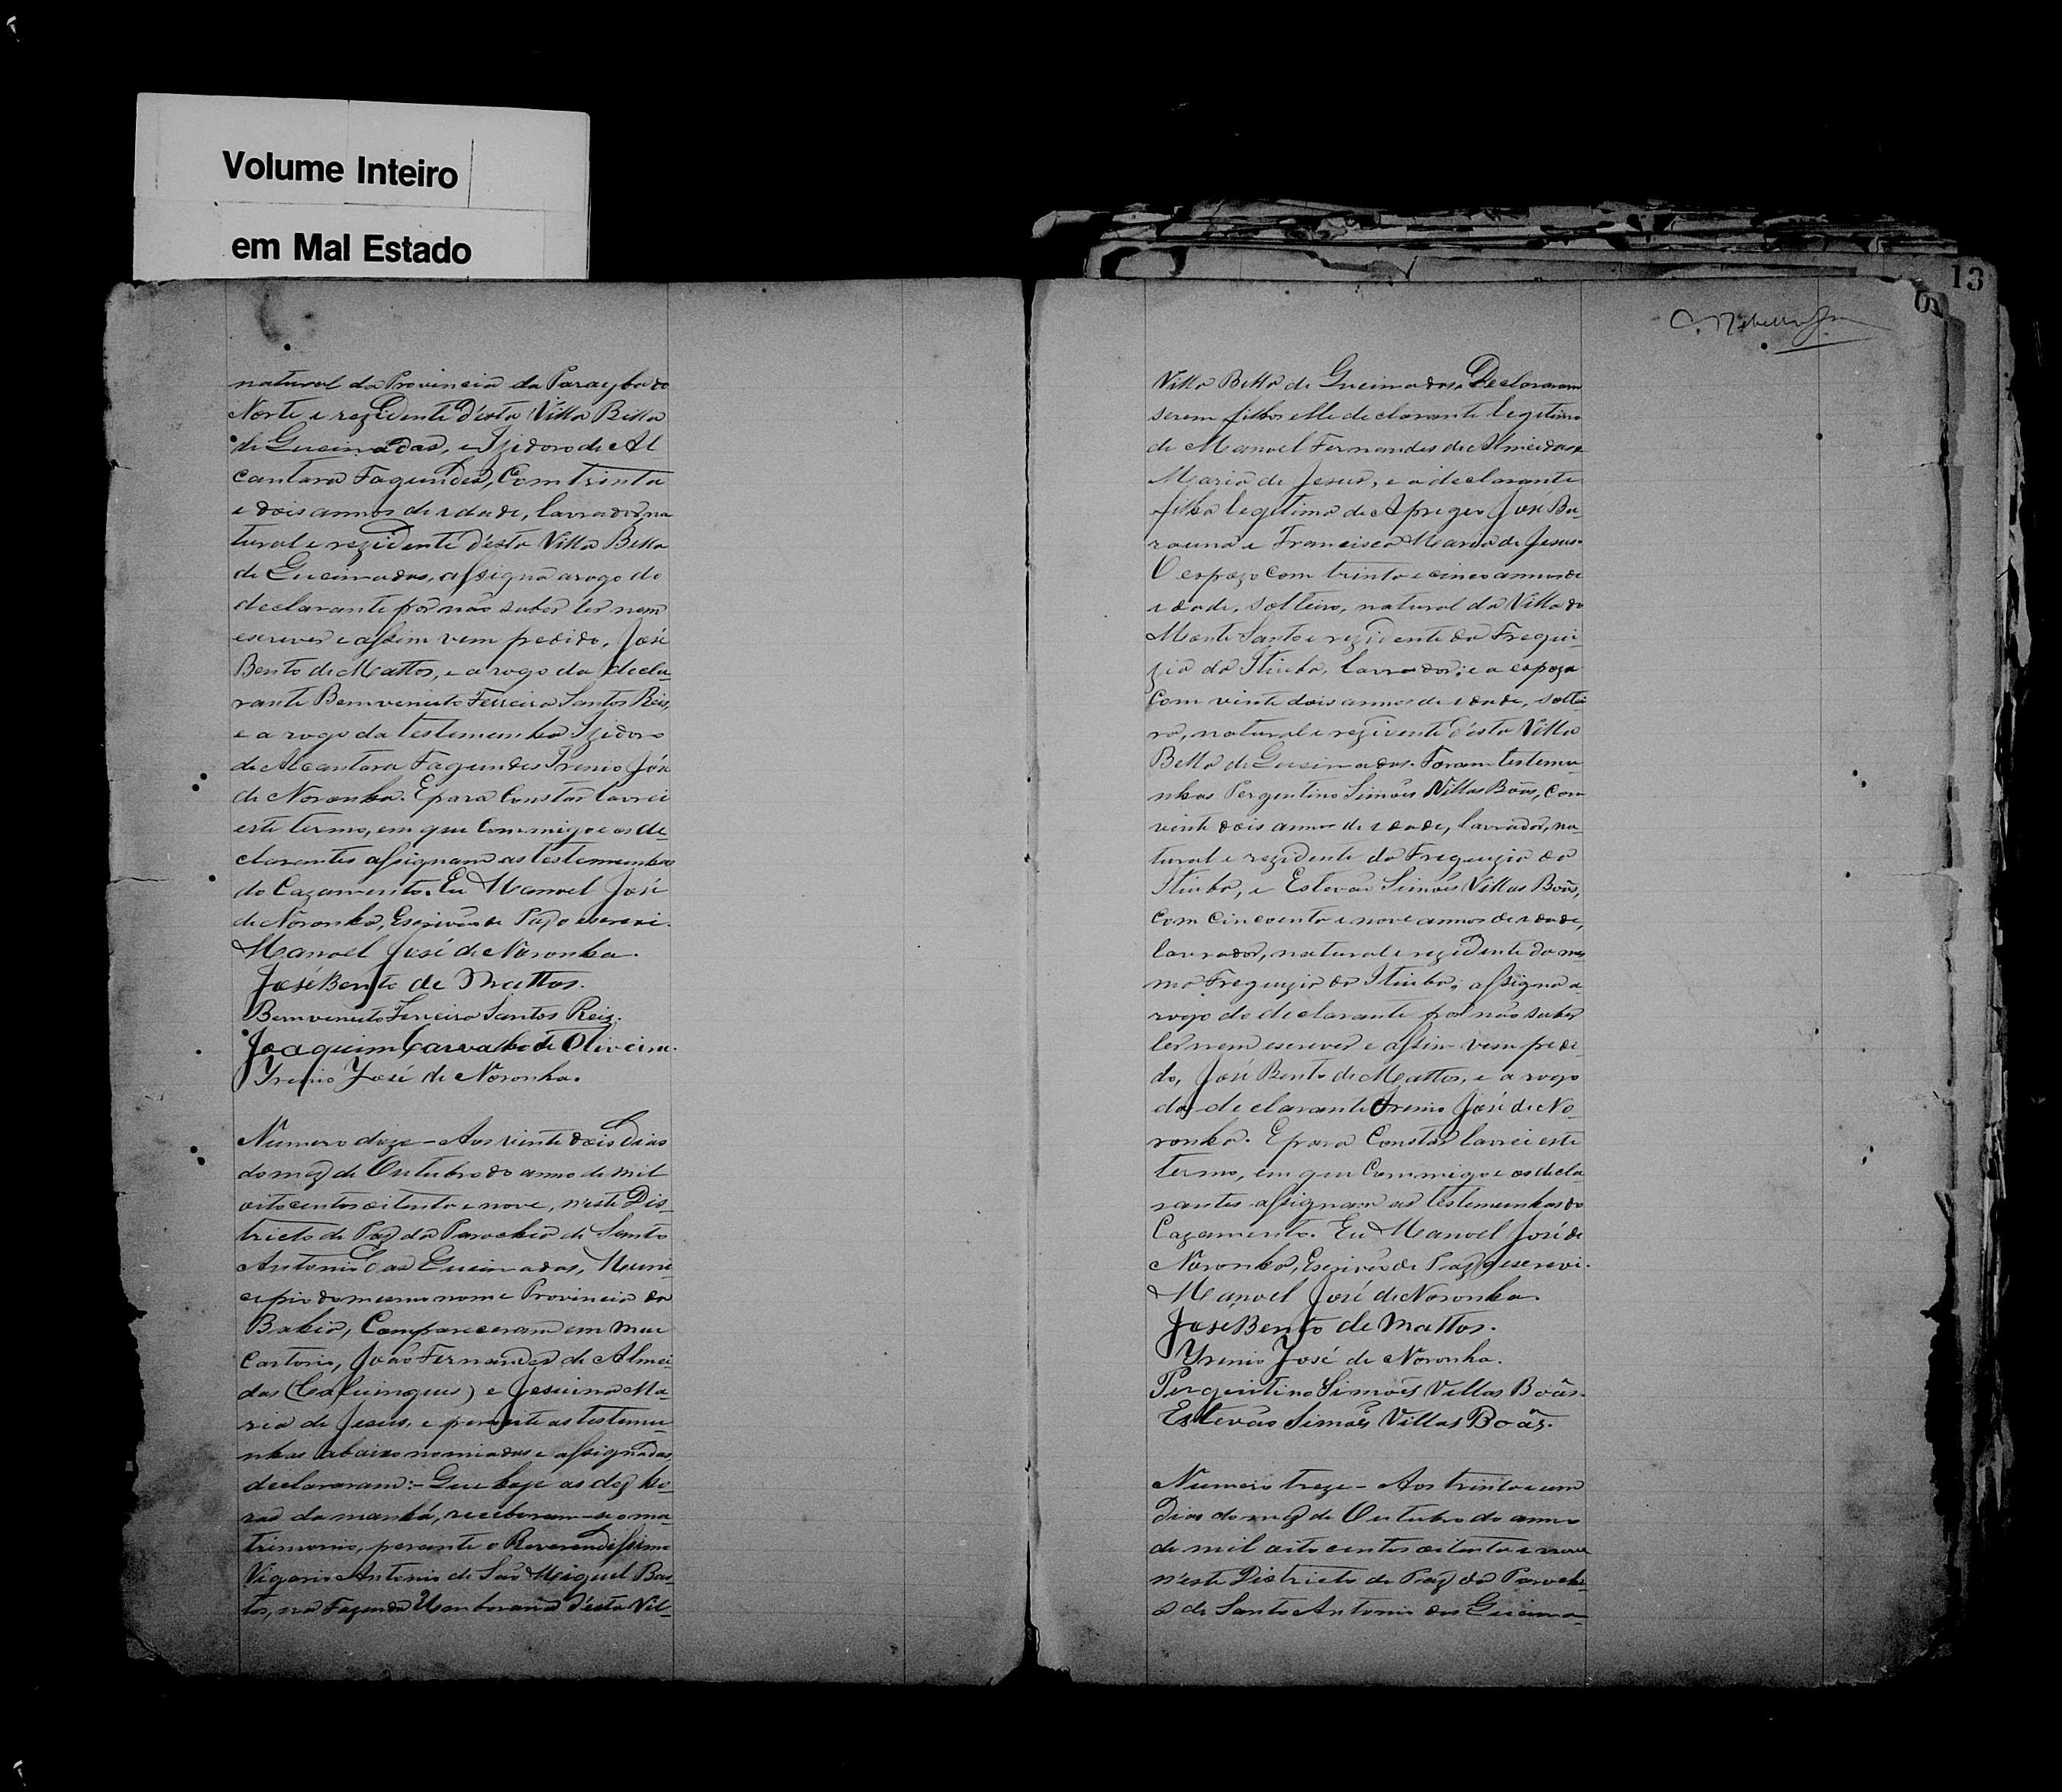 Volume Inteiro
em Mal Estado
natural da Provincia da Parayba do
Norte e rezidente d'esta Villa Bella
de Queimadas, e Izidoro de Al
cantara Fagundes, Com trinta
e dois annos de idade, lavrador, na
tural e rezidente d'esta Villa Bella
de Queimadas, assigna a rogo do
declarante por não saber ler nem
escrever e assim vem pedido, José
Bento de Mattos, e a rogo da decla-
rante Bemvenuto Ferreira Santos Reis,
e a rogo da testemunha Izidoro
de Alcantara Fagundes Irenio José
de Noronha. E para Constar lavrei
este termo, em que Commigo e os de-
clarantes assignam as testemunhas
do Cazamento. Eu Manoel José
de Noronha, Escrivão de Paz o escrevi.
Manoel José de Noronha.
José Bento de Mattos.
Bemvenuto Ferreira Santos Reis.
Joaquim Carvalho de Oliveira.
Yrenio José de Noronha.
Numero doze - Aos vinte dois dias
do mez de Outubro do anno de mil
oitocentos oitenta e nove, n'este Dis-
tricto de Paz da Parochia de Santo
Antonio das Queimadas, Muni-
cipio do mesmo nome Provincia da
Bahia, Compareceram em meu
Cartorio, João Fernandes de Almei-
das ( ) e Jesuina Ma-
ria de Jesus, e perante as testemu-
nhas abaixo nomiadas e assignadas,
declararam:- Que hoje as dez ho-
ras da manhã, receberam-se em ma-
trimonio, perante o Reverendissimo
Vigario Antonio de São Miguel Bas-
tos, na Fazenda d'esta Vil-
13
Villa Bella de Queimadas. Declararam
serem filhos elle declarante legitimo
de Manoel Fernandes de Almeidas e
Maria de Jesus, e a declarante
filha legitima de Aprigio José Ba-
rauna e Francisca Maria de Jesus.
O espozo com trinta e cinco annos de
idade, solteiro, natural da Villa do
Monte Santo e rezidente da Fregue-
zia da Itiuba, lavrador; e a espoza
Com vinte dois annos de idade, soltei-
ra, natural e rezidente d'esta Villa
Bella de Queimadas. Foram testemu-
nhas Pergentino Simões Villas Bôas, com
vinte dois annos de idade, lavrador, na-
tural e rezidente da Freguezia da
Itiuba, e Estevão Simões Villas Bôas,
com cincoenta e nove annos de idade,
lavrador, natural e rezidente da mes
ma Freguezia da Itiuba; assigna a
rogo do declarante por não saber
ler nem escrever e assim vem pedi-
do, José Bento de Mattos, e a rogo
da declarante Irenio José de No-
ronha. E para Constar lavrei este
termo, em que Commigo e os decla-
rantes assignam as testemunhas do
Cazamento. Eu Manoel José de
Noronha, Escrivão de Paz o escrevi.
Manoel José de Noronha.
José Bento de Mattos.
Yrenio José de Noronha.
Pergentino Simões Villas Boâs.
Estevão Simões Villas Boâs.
Numero treze - Aos trinta e um
dias do mez de Outubro do anno
de mil oitocentos oitenta e nove
n'este Districto de Paz da Parochi-
a de Santo Antonio das Queima-